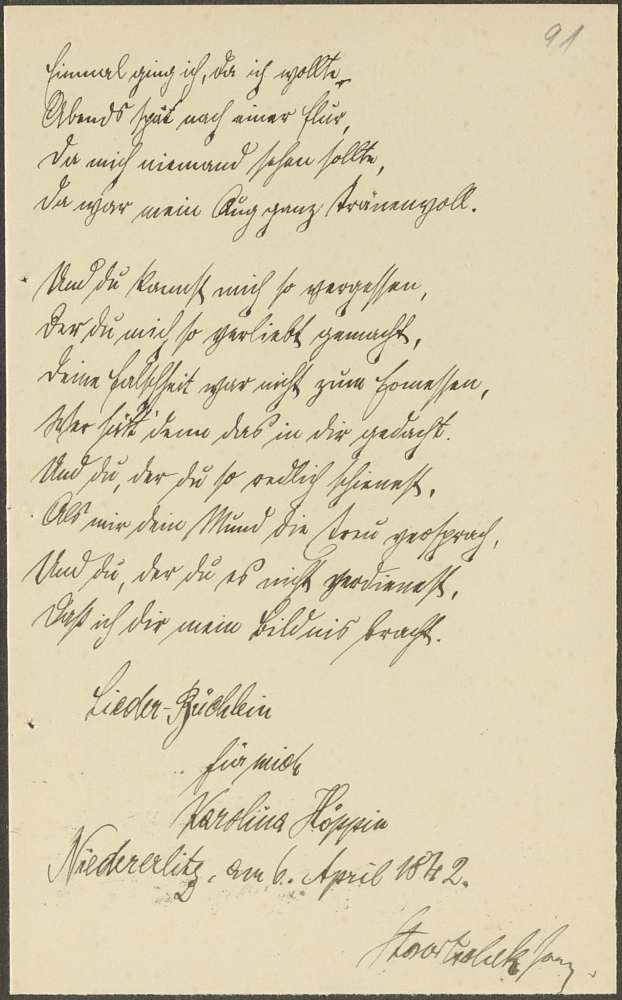 91
Einmal ging ich, da ich wollte,
Abends spät nach einer Flur,
Da mich niemand sehen sollte,
Da war mein Aug ganz tränenvoll.
Und du kannst mich so vergessen,
Der du mich so verliebt gemacht,
Deine Falschheit war nicht zum Ermessen,
Wer hätt' denn das in dir gedacht.
Und du, der du so redlich schienest,
Als mir dein Mund die Treu versprach,
Und du, der du es nicht verdienest,
Daß ich dir mein Bildnis bracht.
Lieder-Büchlein
für mich
Karolina Höppin
Niedererlitz, am 6. April 1842.